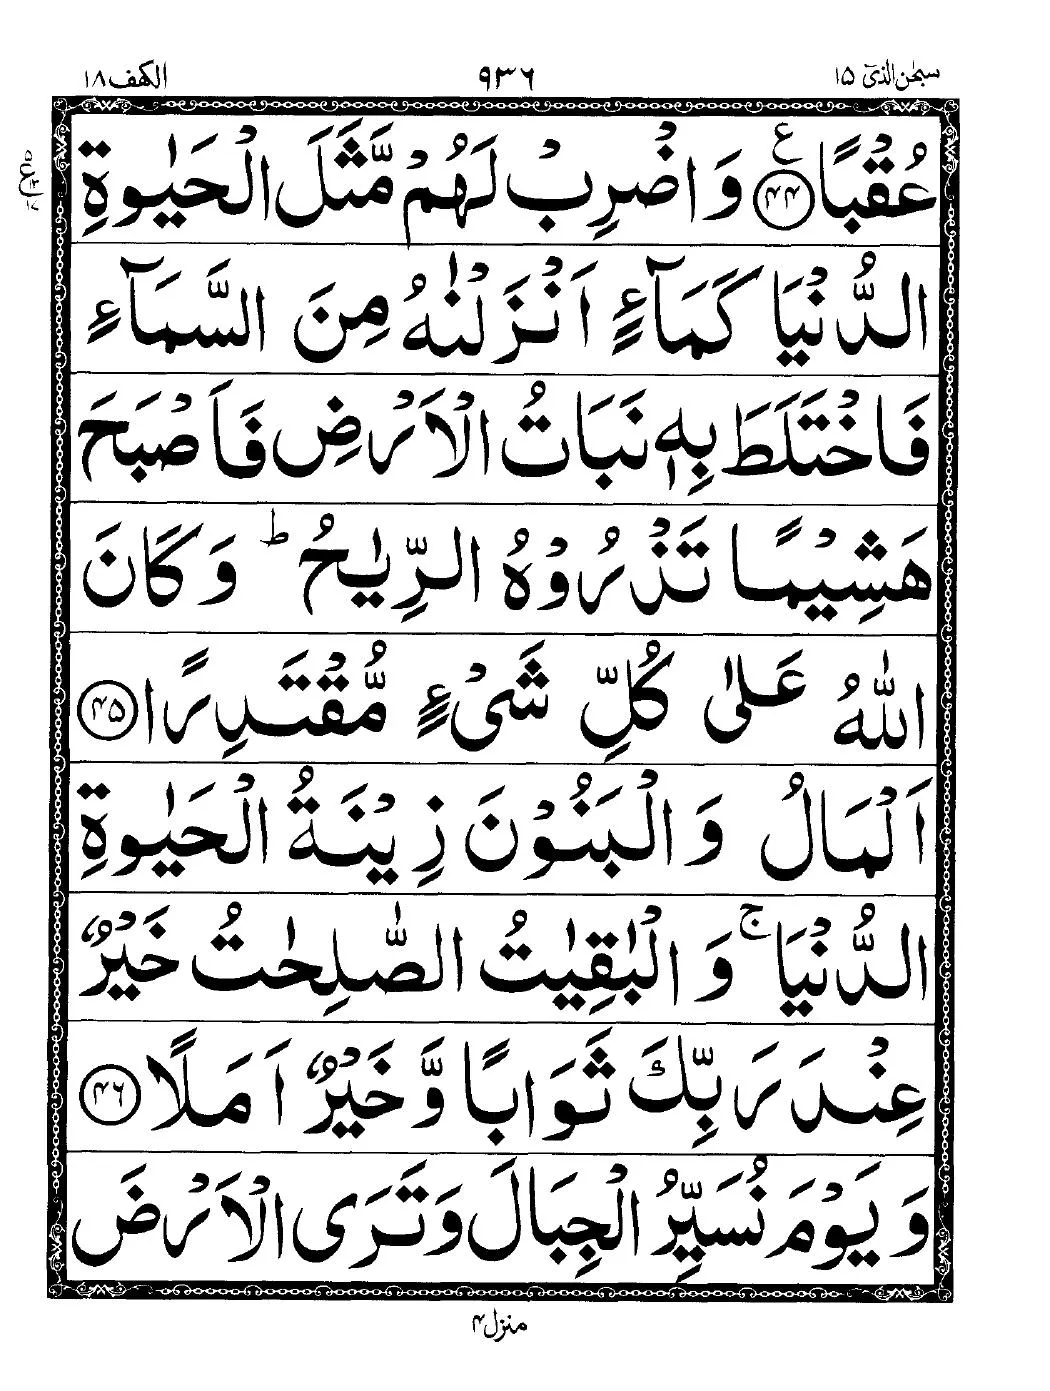 سبحٰن الذیٓ ۱۵
۹۳۶
الكهف ۱۸
عُقْبًا ﴿۴۴﴾ ع وَ اضْرِبْ لَهُمْ مَّثَلَ الْحَیٰوةِ
الدُّنْیَا كَمَآءٍ اَنْزَلْنٰهُ مِنَ السَّمَآءِ
فَاخْتَلَطَ بِهٖ نَبَاتُ الْاَرْضِ فَاَصْبَحَ
هَشِیْمًا تَذْرُوْهُ الرِّیٰحُ ؕ وَ كَانَ
اللّٰهُ عَلٰی كُلِّ شَیْءٍ مُّقْتَدِرًا ﴿۴۵﴾
اَلْمَالُ وَ الْبَنُوْنَ زِیْنَةُ الْحَیٰوةِ
الدُّنْیَا ۚ وَ الْبٰقِیٰتُ الصّٰلِحٰتُ خَیْرٌ
عِنْدَ رَبِّكَ ثَوَابًا وَّ خَیْرٌ اَمَلًا ﴿۴۶﴾
وَ یَوْمَ نُسَیِّرُ الْجِبَالَ وَ تَرَی الْاَرْضَ
منزل ۴